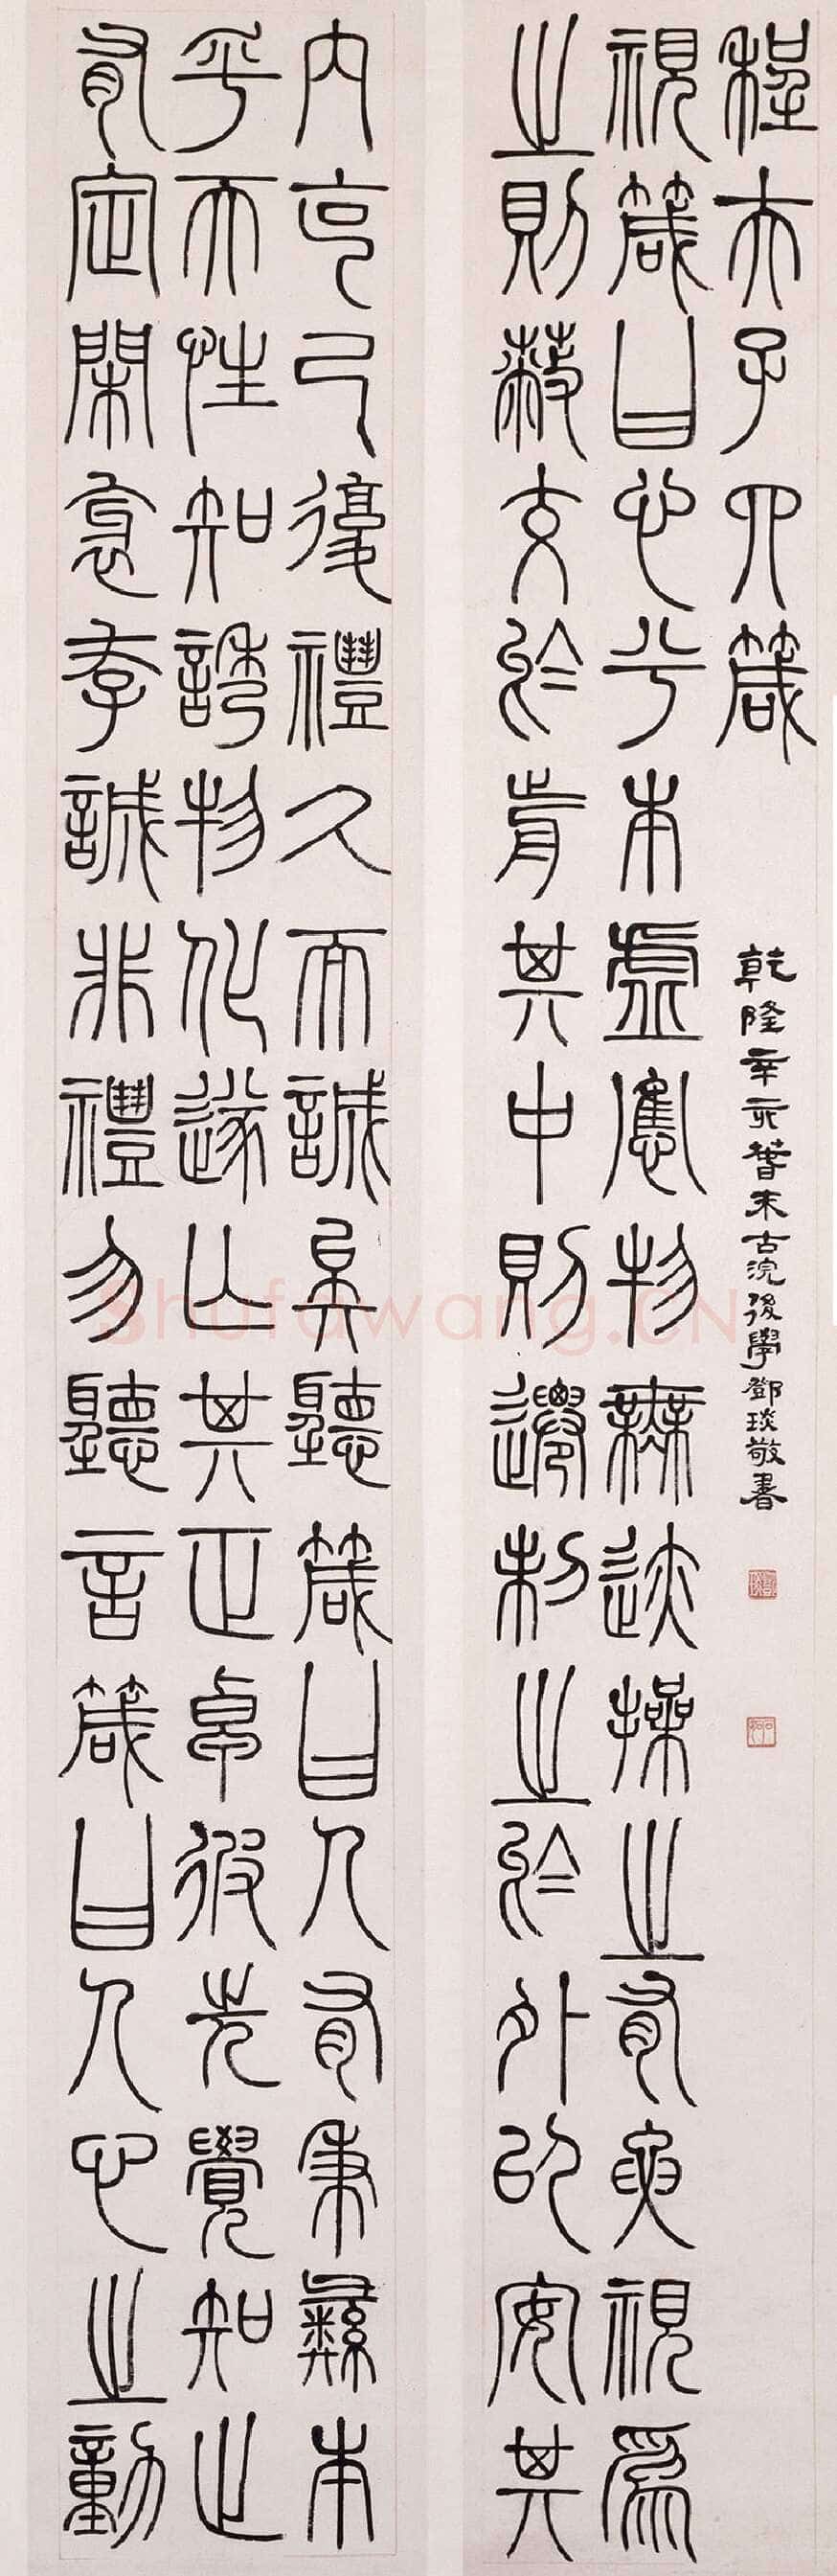 程夫子四箴
乾隆辛亥春末古浣後學鄧琰敬書
視箴曰心兮本虛應物無迹操之有要視爲
之則蔽交於前其中則遷制之於外以安其
内克己復禮久而誠矣聽箴曰人有秉彝本
乎天性知誘物化遂亡其正卓彼先覺知止
有定閑邪存誠非禮勿聽言箴曰人心之動
Shufawang.CN